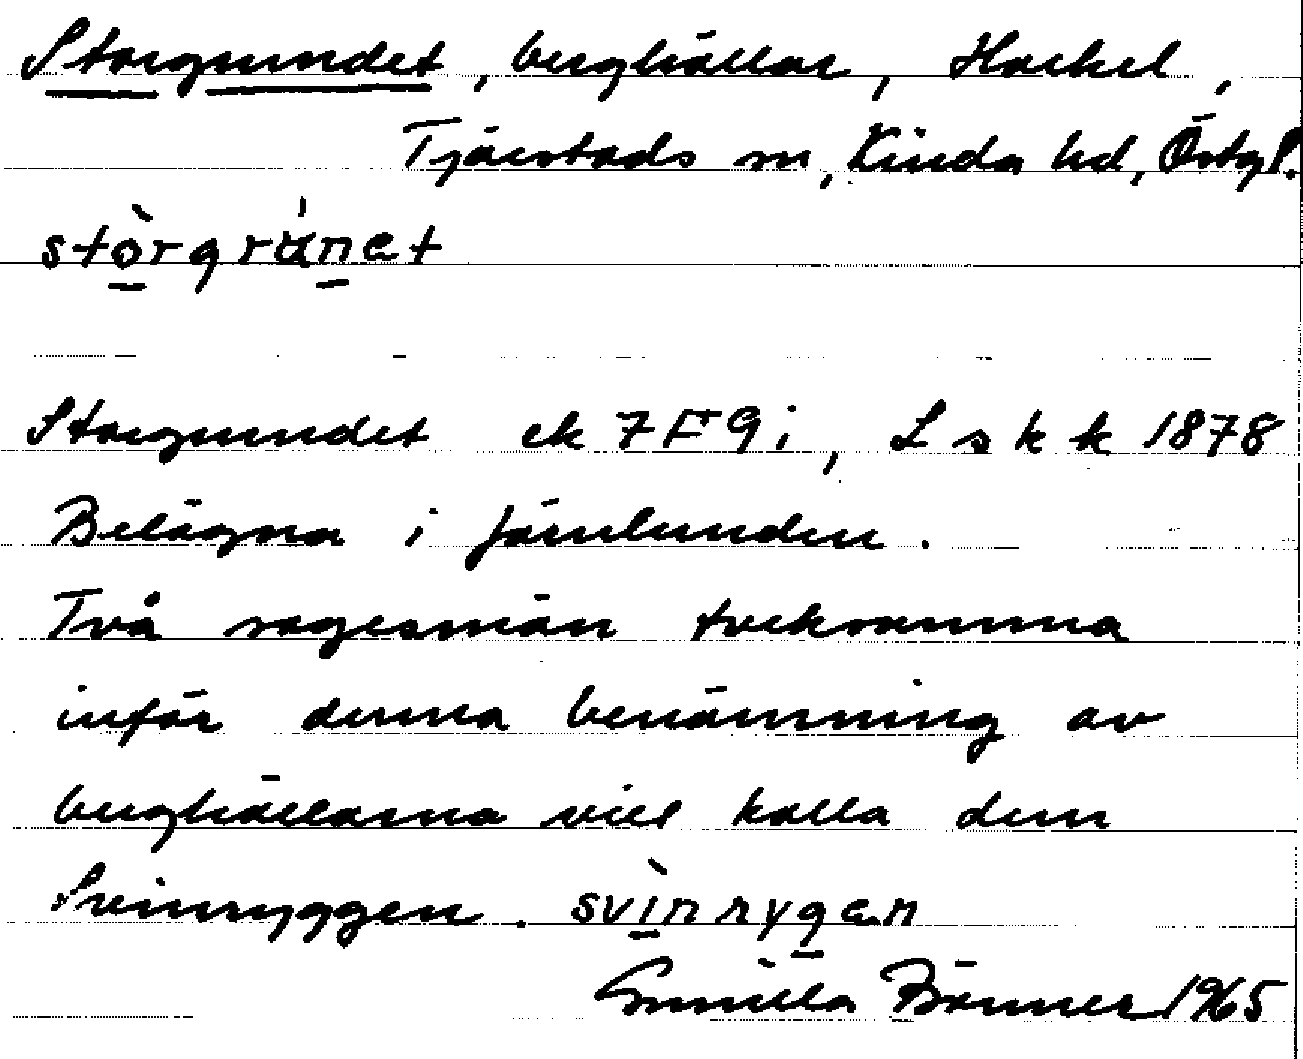 Storgrundet, berghällar, Hackel,
Tjärstads sn, Kinda hd, Östgl.
stòrgránet
Storgrundet ek 7F9i, L s k k 1878
Belägna i Järnlunden.
Två sagesmän tveksamma
inför denna benämning av
berghällarna vill kalla dem
Svinryggen. svìnrygen
Gunilla Börner 1965